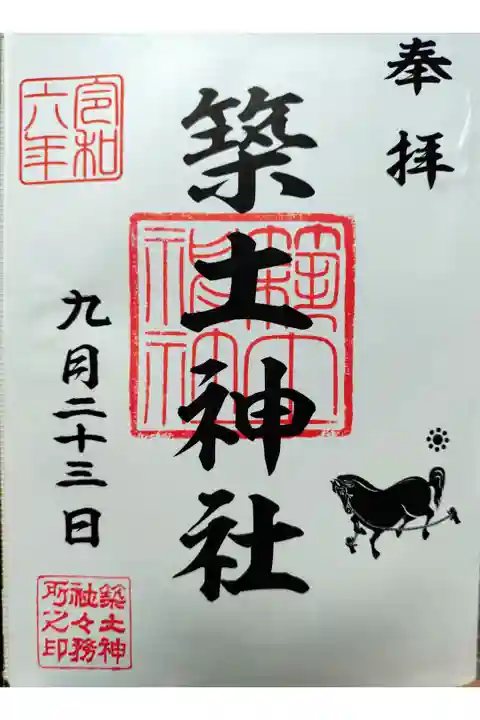 奉拝
築土神社
築土神社
令和六年
九月二十三日
築土神社々務所之印